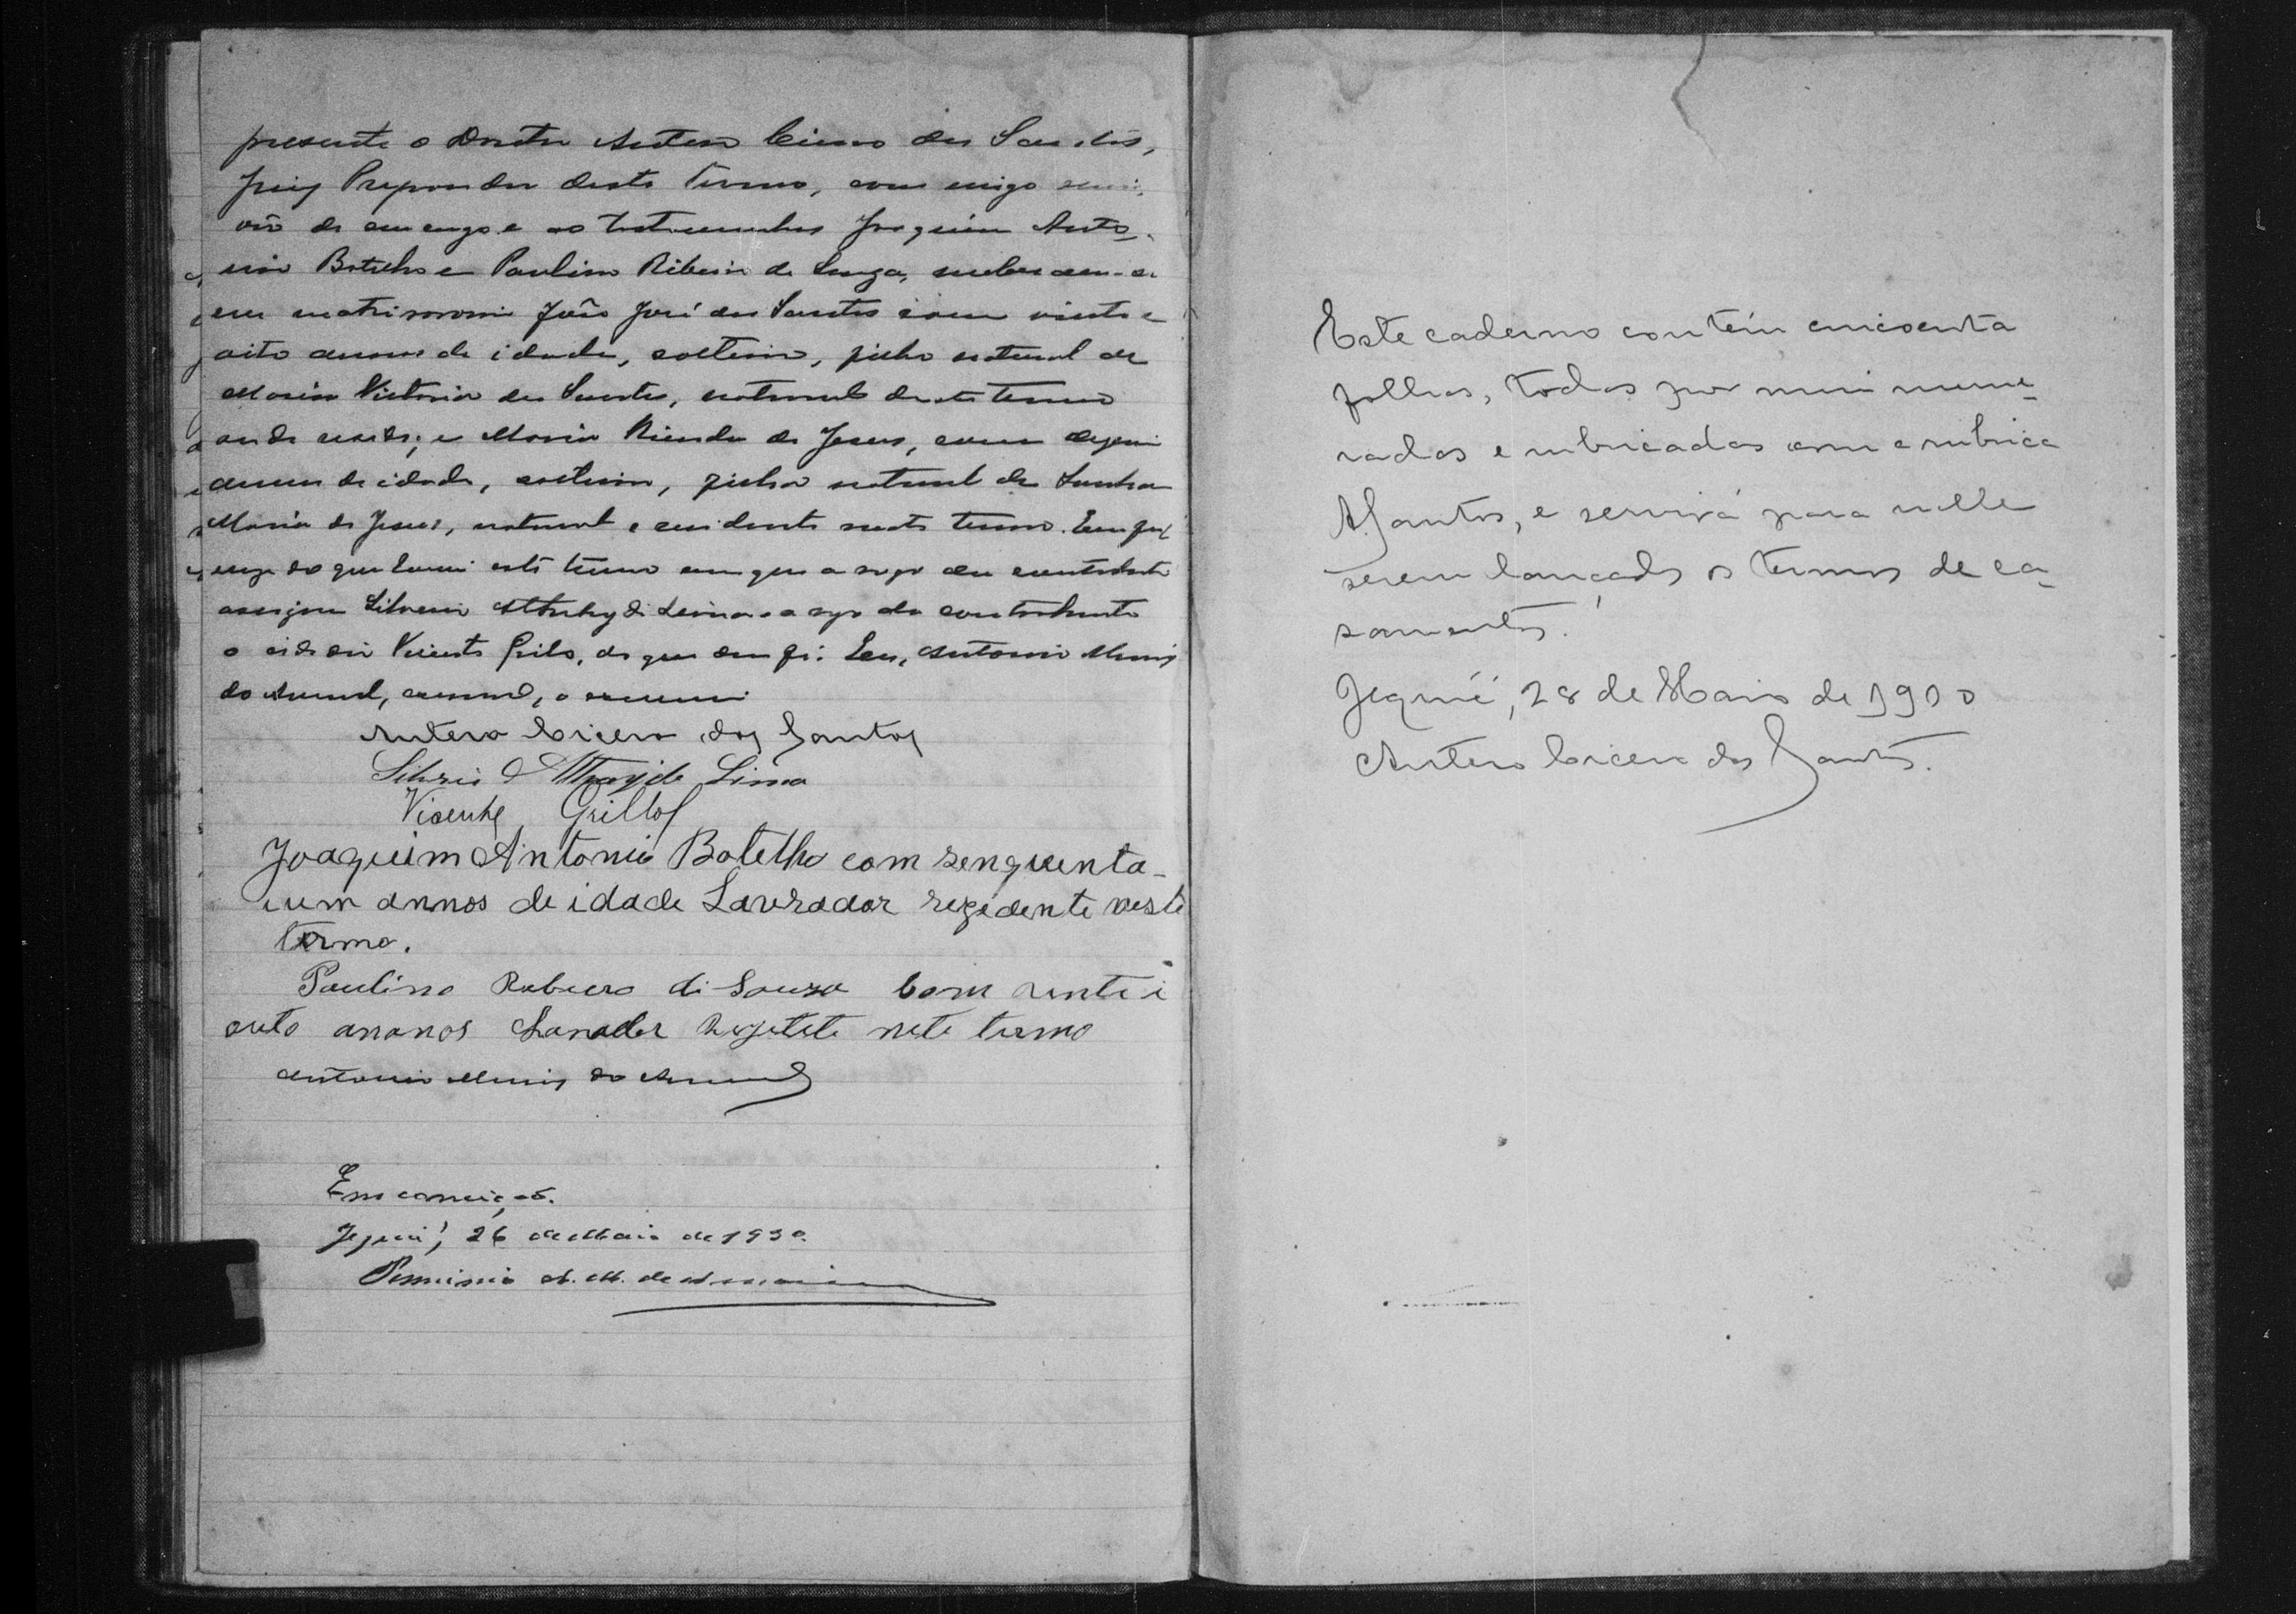 presente o Doutor Antero Cicero dos Santos,
Juiz Preparador deste termo, com migo escri-
vão de seu cargo e as testemunhas Joaquim Anto-
nio Botelho e Paulino Ribeiro de Souza, receberam-se
em matrimonio João José dos Santos com vinte e
oito annos de idade, solteiro, filho natural de
Maria Victoria dos Santos, natural deste termo
onde reside; e Maria de Jesus, com
annos de idade, solteira, filha natural de
Maria de Jesus, natural e residente neste termo. Em fir
meza do que lavrei este termo em que a rogo do contrahente
assigna Silverio Athayde Lima e a rogo da contrahente
o cidadão Vicente Grilo, do que dou fé. Eu, Antonio Muniz
do Amaral, escrivão, o escrevi
Antero Cicero dos Santos
Silverio Athayde Lima
Vicente Grillo
Joaquim Antonio Botelho com senquenta-
ium annos de idade Lavrador rezidente neste
termo.
Paulino Rebuero di Souza Com
outo ananos nete termo
Antonio Muniz do Amaral
Em correição.
Jequié, 26 de Maio de 1930.
Este caderno contém cincoenta
folhas, todas por mim nume-
radas e rubricadas com a rubrica
ASantos, e servirá para nelle
serem lançados os termos de ca-
samentos.
Jequié, 28 de Maio de 1910
Antero Cicero dos Santos.